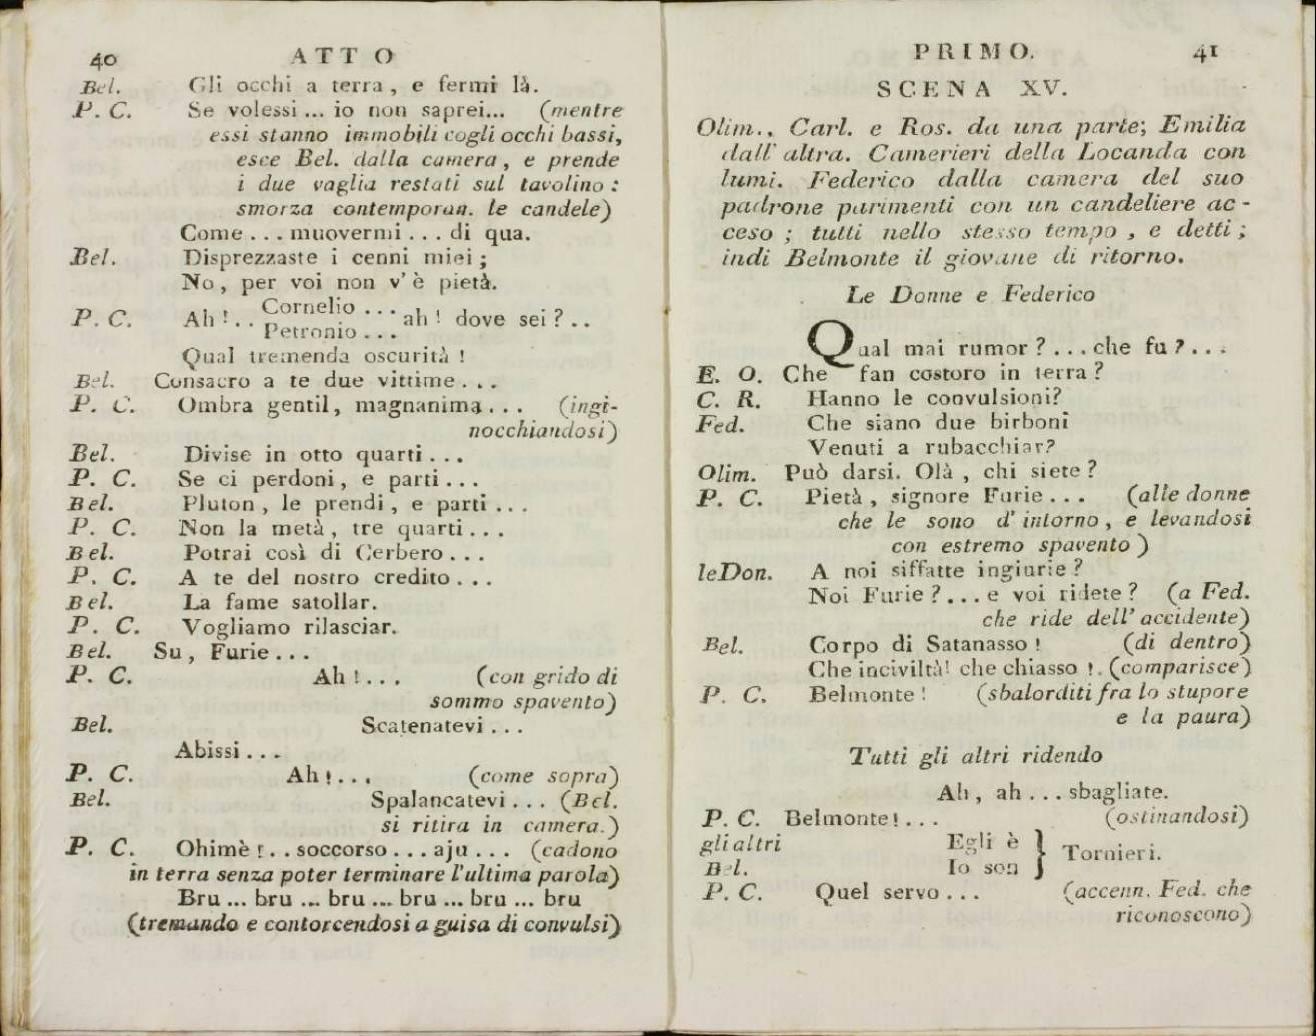 40 ATTO
Bel. Gli occhi a terra, e fermi là.
P. C. Se volessi ... io non saprei... (mentre
essi stanno immobili cogli occhi bassi,
esce Bel. dalla camera, e prende
i due vaglia restati sul tavolino:
smorza contemporan. le candele)
Come ... muovermi ... di qua.
Bel. Disprezzaste i cenni miei;
No, per voi non v'è pietà.
P. C. Ah!.. Cornelio ... ah! dove sei?..
Petronio ...
Qual tremenda oscurità!
Bel. Consacro a te due vittime ...
P. C. Ombra gentil, magnanima ... (ingi-
nocchiandosi)
Bel. Divise in otto quarti ...
P. C. Se ci perdoni, e parti ...
Bel. Pluton, le prendi, e parti ...
P. C. Non la metà, tre quarti ...
Bel. Potrai così di Cerbero ...
P. C. A te del nostro credito ...
Bel. La fame satollar.
P. C. Vogliamo rilasciar.
Bel. Su, Furie ...
P. C. Ah!... (con grido di
sommo spavento)
Bel. Scatenatevi ...
Abissi ...
P. C. Ah!... (come sopra)
Bel. Spalancatevi ... (Bel.
si ritira in camera.)
P. C. Ohimè!.. soccorso ... aju ... (cadono
in terra senza poter terminare l'ultima parola)
Bru ... bru ... bru ... bru ... bru ... bru
(tremando e contorcendosi a guisa di convulsi)
PRIMO. 41
SCENA XV.
Olim., Carl. e Ros. da una parte; Emilia
dall'altra. Camerieri della Locanda con
lumi. Federico dalla camera del suo
padrone parimenti con un candeliere ac-
ceso; tutti nello stesso tempo, e detti;
indi Belmonte il giovane di ritorno.
Le Donne e Federico
Qual mai rumor? ... che fu? ...
E. O. Che fan costoro in terra?
C. R. Hanno le convulsioni?
Fed. Che siano due birboni
Venuti a rubacchiar?
Olim. Può darsi. Olà, chi siete?
P. C. Pietà, signore Furie ... (alle donne
che le sono d'intorno, e levandosi
con estremo spavento)
le Don. A noi siffatte ingiurie?
Noi Furie? ... e voi ridete? (a Fed.
che ride dell'accidente)
Bel. Corpo di Satanasso! (di dentro)
Che inciviltà! che chiasso!. (comparisce)
P. C. Belmonte! (sbalorditi fra lo stupore
e la paura)
Tutti gli altri ridendo
Ah, ah ... sbagliate.
P. C. Belmonte! ... (ostinandosi)
gli altri Egli è } Tornieri.
Bel. Io son
P. C. Quel servo ... (accenn. Fed. che
riconoscono)